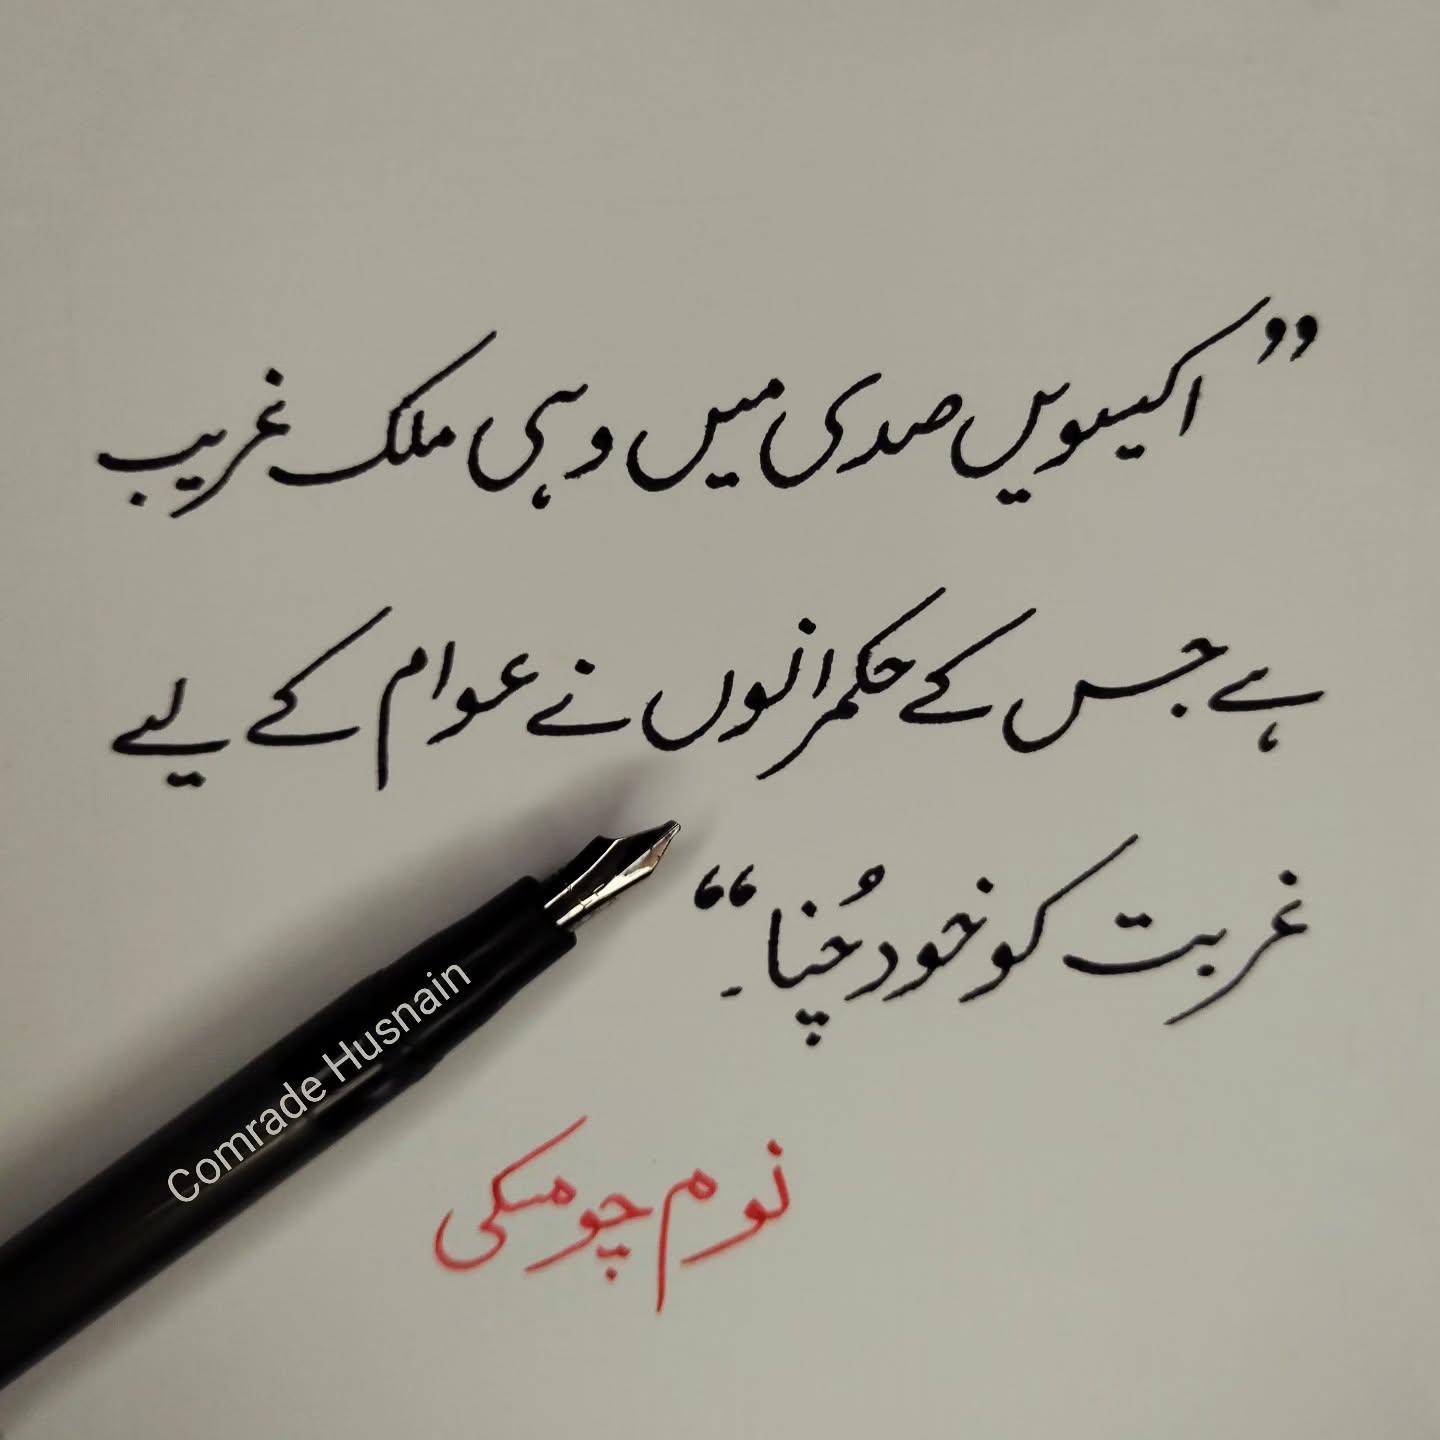 ”اکیسویں صدی میں وہی ملک غریب
ہے جس کے حکمرانوں نے عوام کے لیے
غربت کو خود چُنا۔“
نوم چومسکی
Comrade Husnain